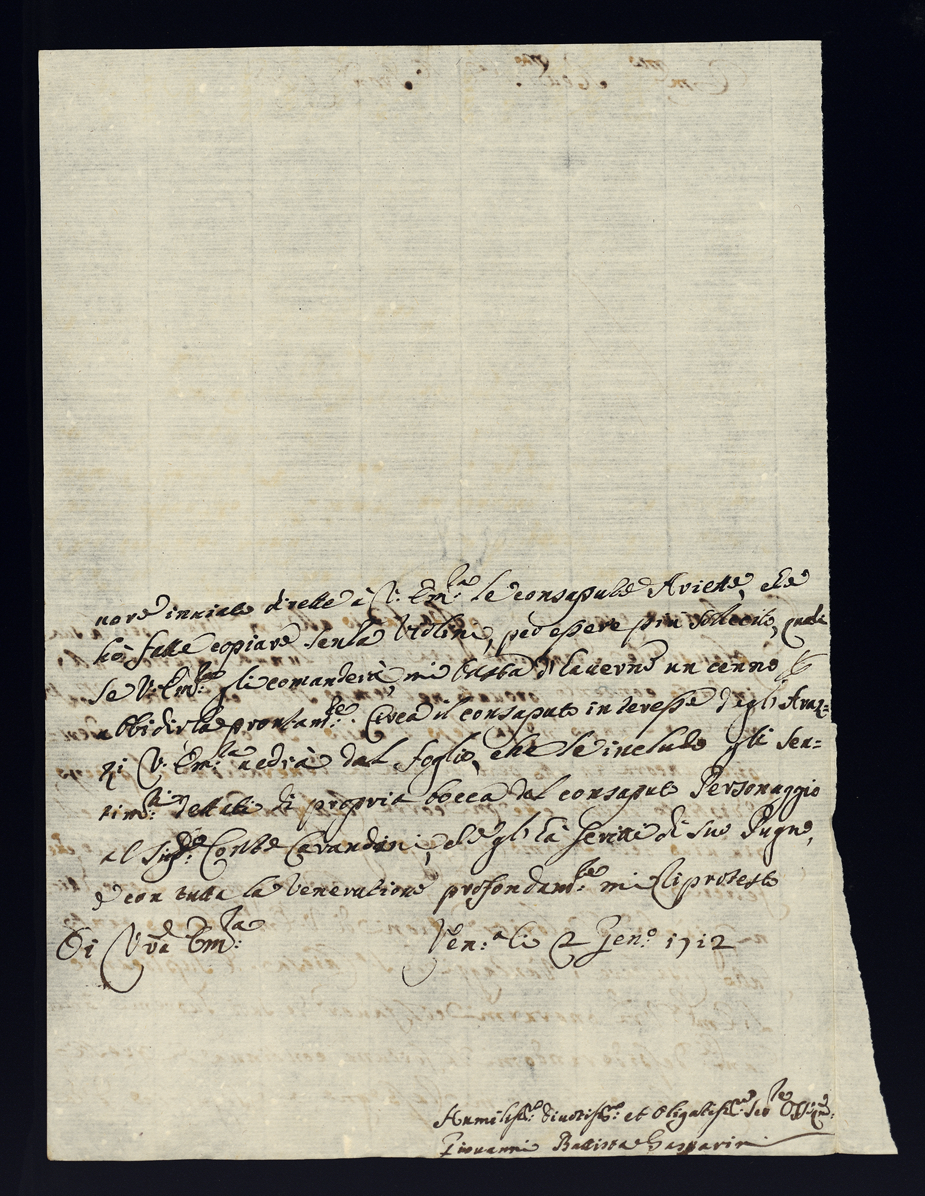 nore inuiate dirette à V: Em:za le consapute Ariette, che
hò fatte copiare senza Violini, per essere più sollecito, quali
se V: Em:za gli comanderà, mi basta d'hauerne un cenno
ubbidirla prontam:te Circa il consaputo interesse degl'Araz=
zi V: Em:za uedrà dal foglio, che le includo gli Sen=
tim:ti dettati di propria bocca dal consaputo Personaggio
al Sig:r Conte Cavandini, che gl'hà scritti di suo Pugno,
e con tutta la Veneratione profondam:te mi Riprotesto
Di V:ra Em:za Ven:a li 2 Gen:o 1712
Humiliss:o Diuotiss:o et Obligatiss:o Ser:re Oss:mo
Giouanni Battista Gasparini